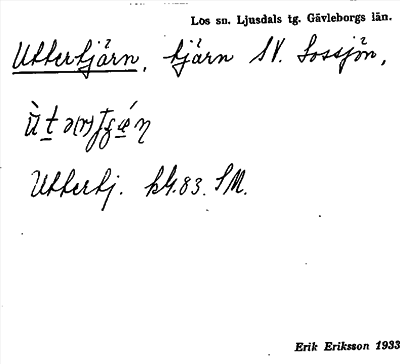 Los sn. Ljusdals tg. Gävleborgs län.
Uttertjärn, tjärn SV. Lossjön,
Uttertj. hk. 83. SM.
Erik Eriksson 1933